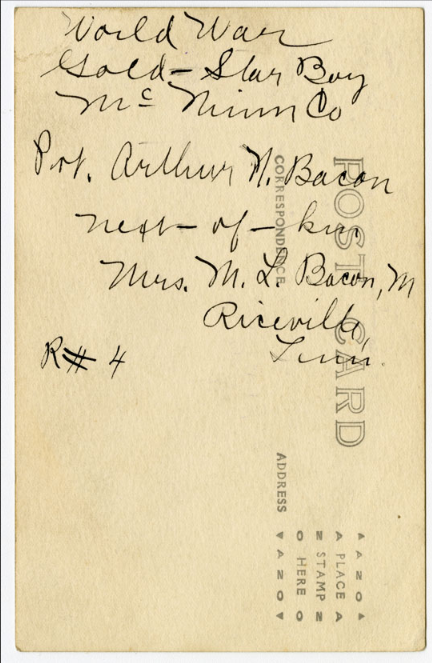 World War
Gold-Star Boy
Mc Minn Co
Pvt. Arthur N. Bacon
next-of-kin
Mrs. M. L. Bacon, M
Riceville,
Tenn.
R# 4
POST CARD
CORRESPONDENCE
ADDRESS
AZO
PLACE
STAMP
HERE
AZO